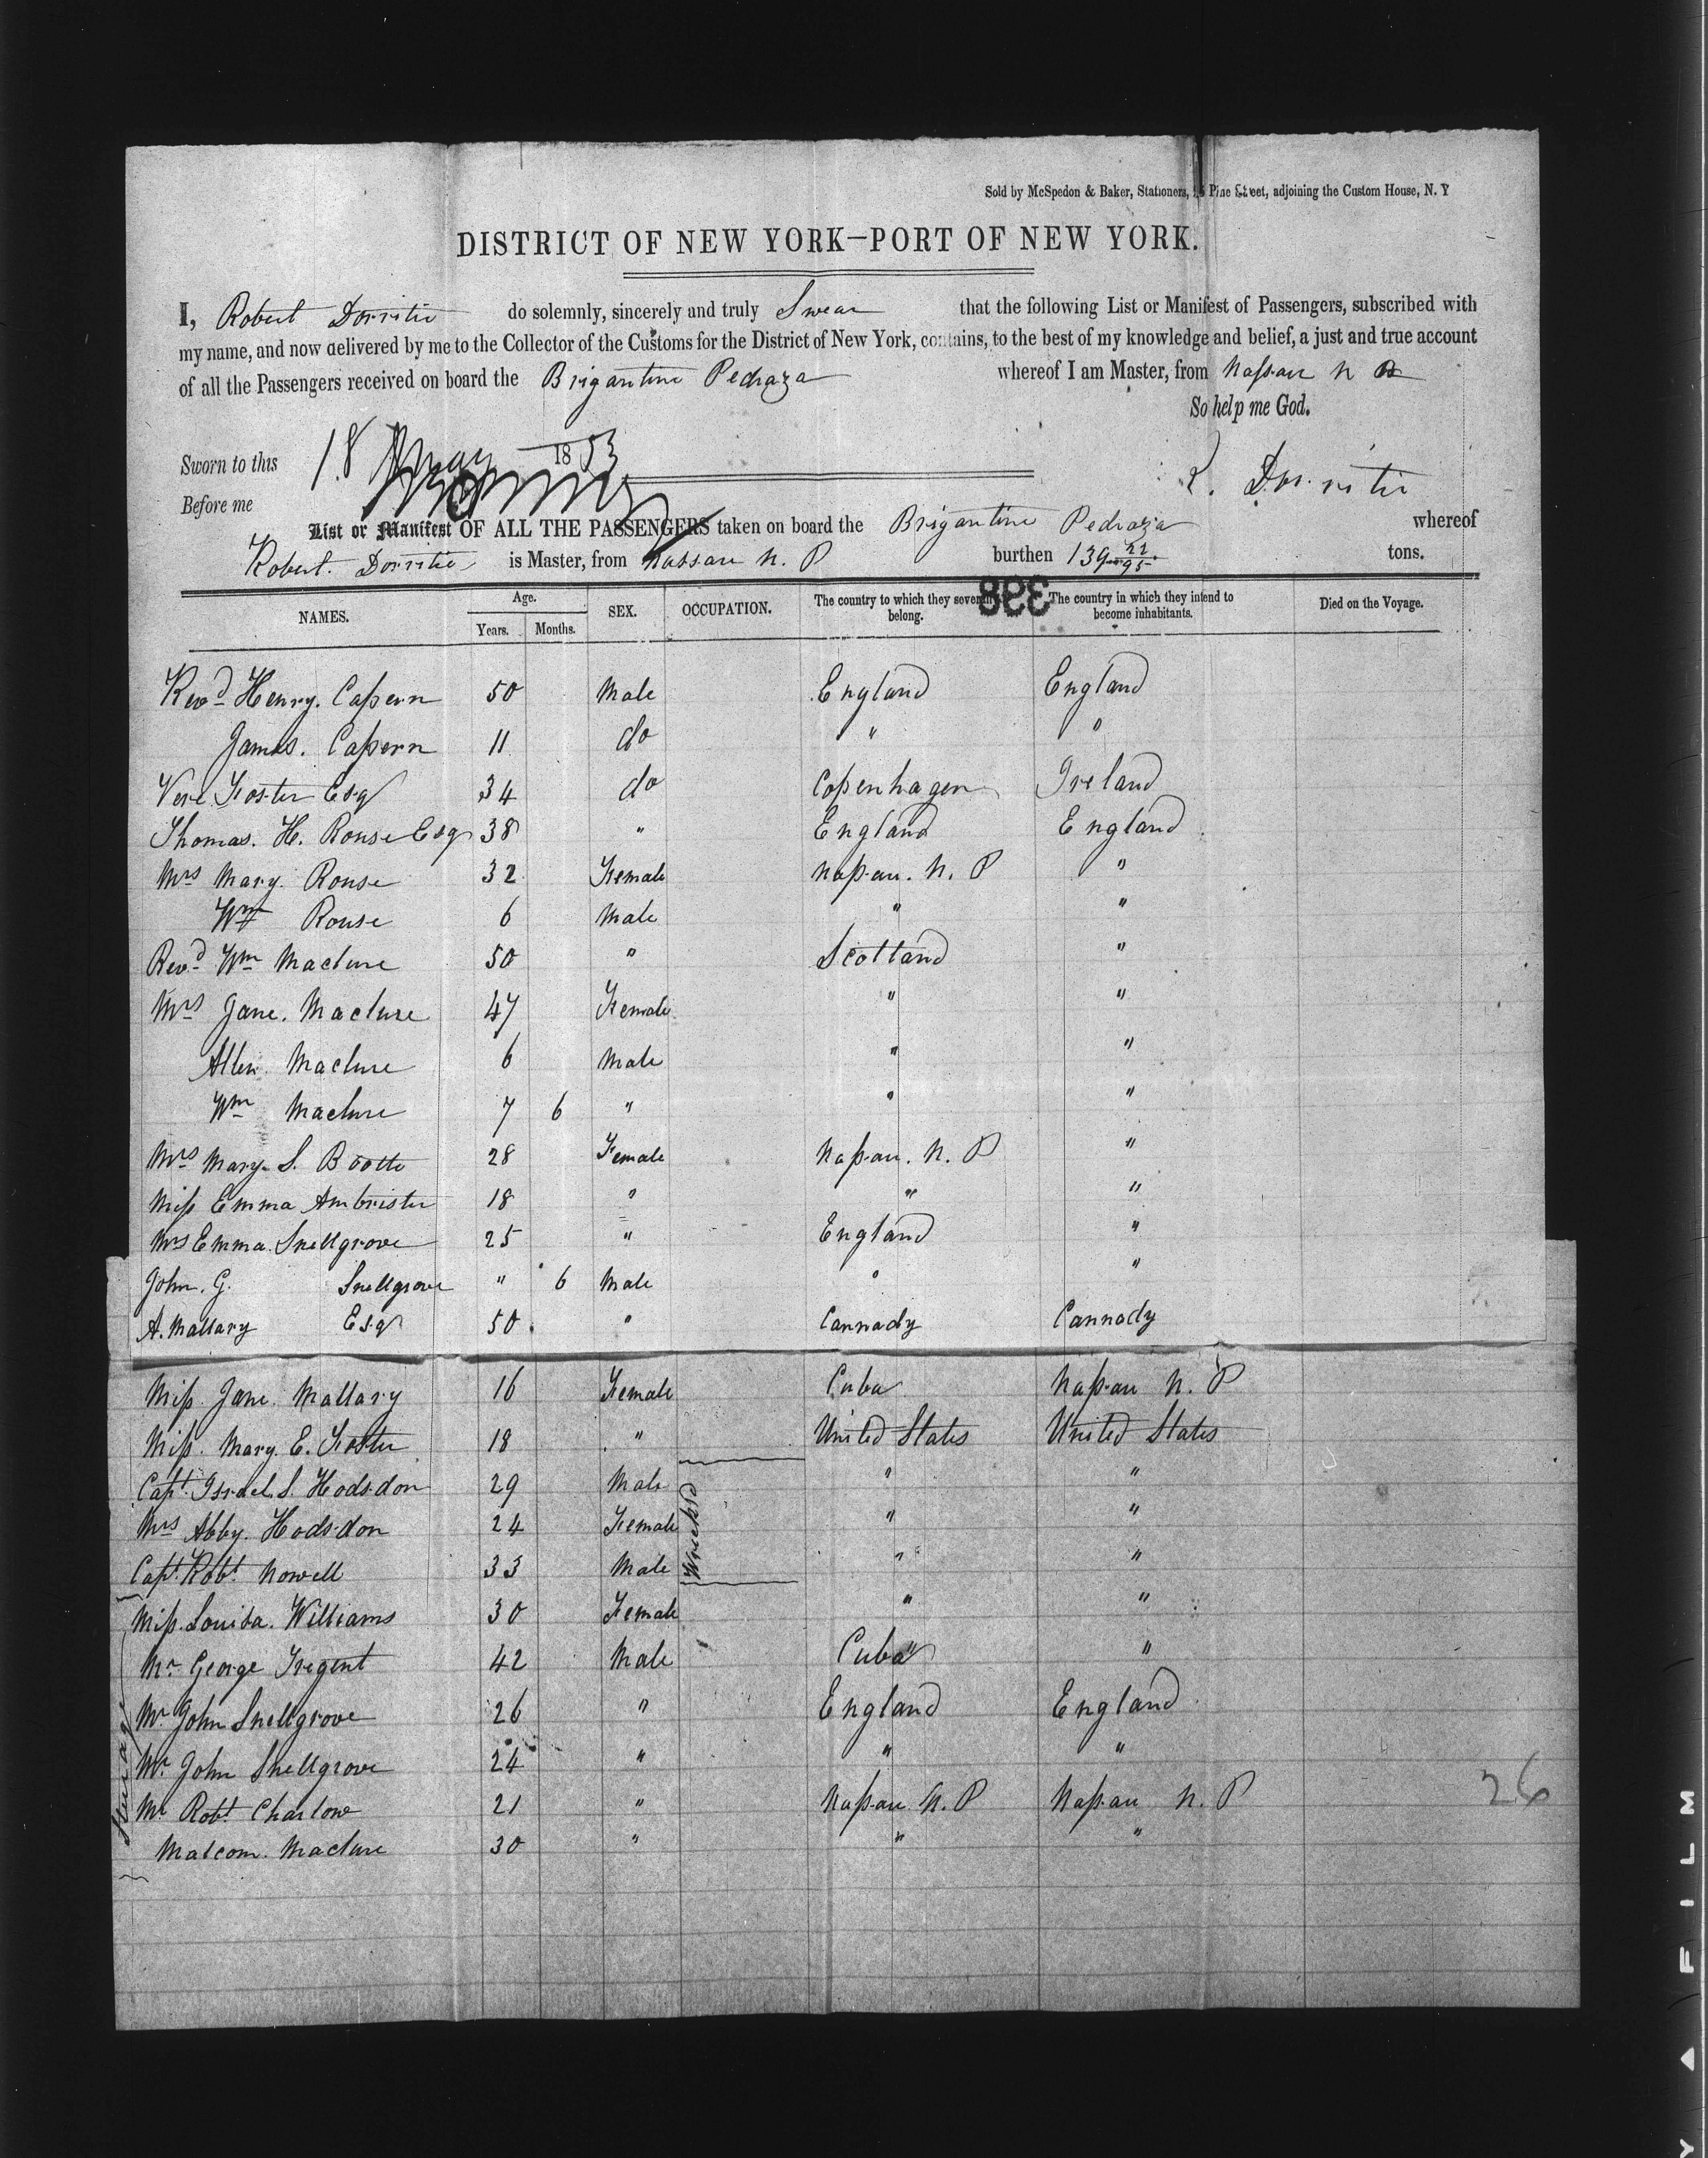 Sold by McSpedon & Baker, Stationers, Pine Street, adjoining the Custom House, N. Y
DISTRICT OF NEW YORK—PORT OF NEW YORK.
I, Robert Dorritie do solemnly, sincerely and truly Swear that the following List or Manifest of Passengers, subscribed with
my name, and now delivered by me to the Collector of the Customs for the District of New York, contains, to the best of my knowledge and belief, a just and true account
of all the Passengers received on board the Brigantine Pedraza whereof I am Master, from Nassau N P
So help me God.
Sworn to this 18 May 1853
R. Dorritie
Before me
List or Manifest OF ALL THE PASSENGERS taken on board the Brigantine Pedraza whereof
Robert. Dorritie is Master, from Nassau N. P burthen 139 22/95 tons.
398
NAMES. Age. Years. Months. SEX. OCCUPATION. The country to which they severally belong. The country in which they intend to become inhabitants. Died on the Voyage.
Revd Henry. Capern 50 Male England England
James. Capern 11 do " "
Vere Foster Esq 34 do Copenhagen Ireland
Thomas. H. Rouse Esq 38 " England England
Mrs Mary Rouse 32 Female Nassau. N. P "
Wm Rouse 6 Male " "
Revd Wm Maclure 50 " Scotland "
Mrs Jane. Maclure 47 Female " "
Allen Maclure 6 Male " "
Wm Maclure 7 6 " " "
Mrs Mary S. Bootte 28 Female Nassau. N. P "
Miss Emma Ambrister 18 " " "
Mrs Emma Snellgrove 25 " England "
John. G. Snellgrove " 6 Male " "
A. Mallary Esq 50 " Cannady Cannady
Miss Jane Mallary 16 Female Cuba Nassau N. P
Miss. Mary. E. Foster 18 " United States United States
Capt. Israel. S. Hodsdon 29 Male " "
Mrs Abby. Hodsdon 24 Female " "
Wrecked
Capt. Robt. Nowell 33 Male " "
Miss. Louisa. Williams 30 Female " "
Mr George Tregent 42 Male Cuba "
Mr John Snellgrove 26 " England England
Mr John Snellgrove 24 " " "
Mr Robt Charlow 21 " Nassau N. P Nassau N. P
Malcom. Maclure 30 " " "
Steerage
26
FILM